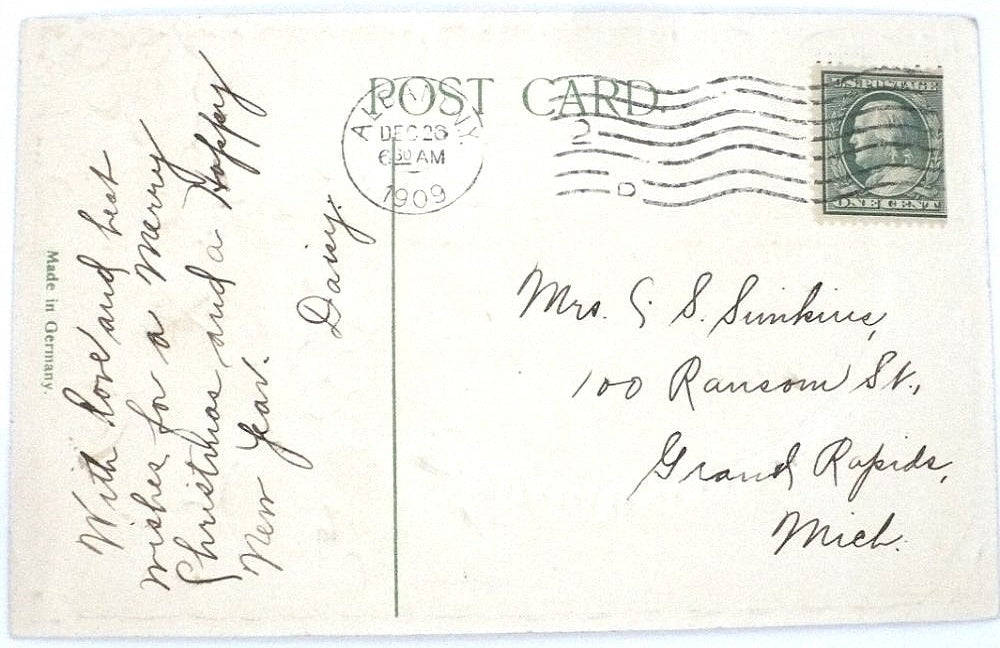 POST CARD
DEC 26
6 30 AM
1909
2
D
U.S. POSTAGE
ONE CENT
Made in Germany.
With love and best
wishes for a Merry
Christmas and a Happy
New Year.
Daisy.
Mrs. S. Simkins,
100 Ransom St.,
Grand Rapids,
Mich.